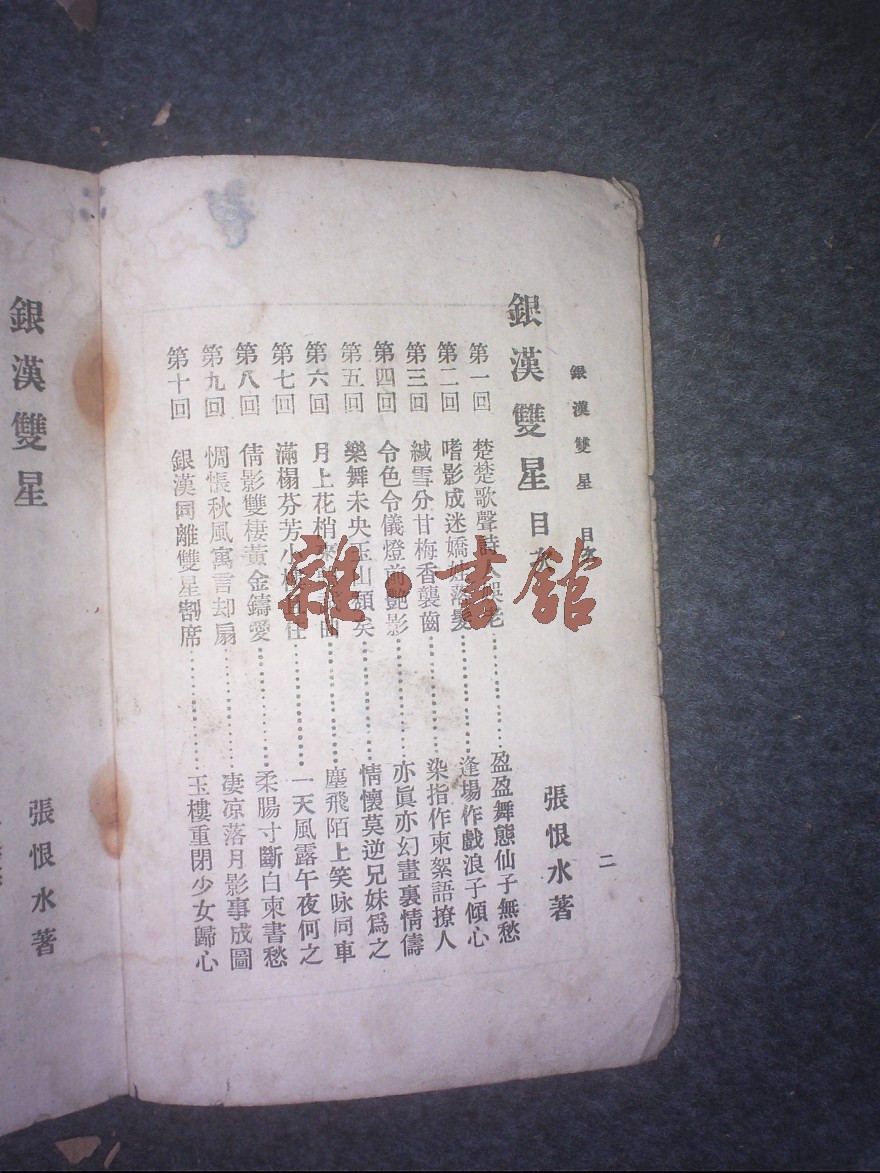 銀漢雙星 目
二
銀漢雙星目 張恨水著
第一回 楚楚歌聲 老 盈盈舞態仙子無愁
第二回 嗜影成迷嬌 髮 逢場作戲浪子傾心
第三回 緘雪分甘梅香襲齒 染指作柬絮語撩人
第四回 令色令儀燈前艷影 亦眞亦幻畫裏情儔
第五回 樂舞未央玉山頹矣 情懷莫逆兄妹爲之
第六回 月上花梢 曲 塵飛陌上笑咏同車
第七回 滿榻芬芳小 住 一天風露午夜何之
第八回 倩影雙棲黃金鑄愛 柔腸寸斷白柬書愁
第九回 惆悵秋風寓言却扇 凄凉落月影事成圖
第十回 銀漢同離雙星割席 玉樓重閉少女歸心
銀漢雙星
張恨水著
雜·書館